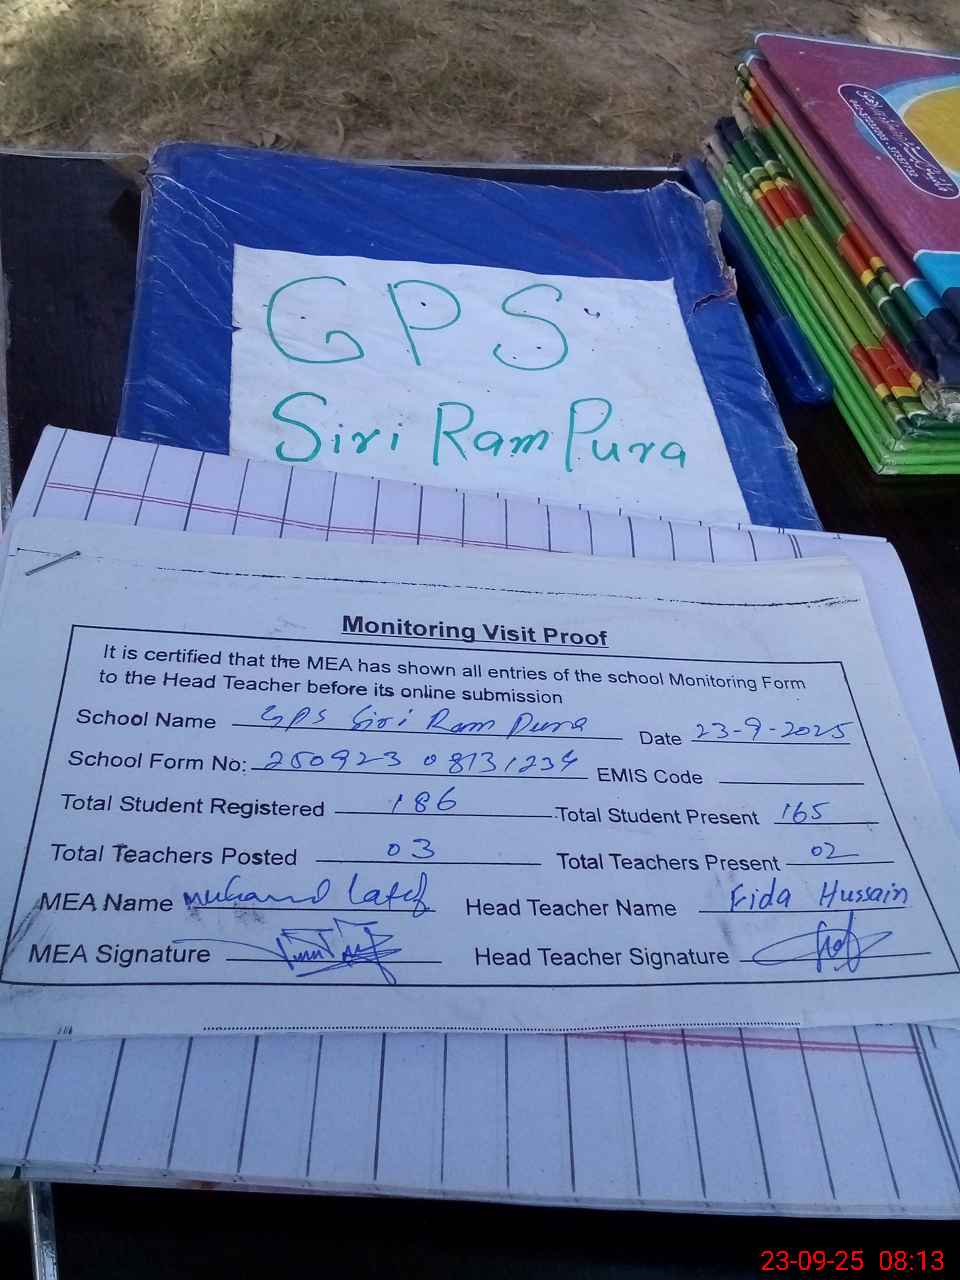 GPS
Siri Ram Pura
Monitoring Visit Proof
It is certified that the MEA has shown all entries of the school Monitoring Form
to the Head Teacher before its online submission
School Name GPS Siri Ram Pura Date 23-9-2025
School Form No: 250923 08131234 EMIS Code
Total Student Registered 186 Total Student Present 165
Total Teachers Posted 03 Total Teachers Present 02
MEA Name Latif Head Teacher Name Fida Hussain
MEA Signature Head Teacher Signature
23-09-25 08:13